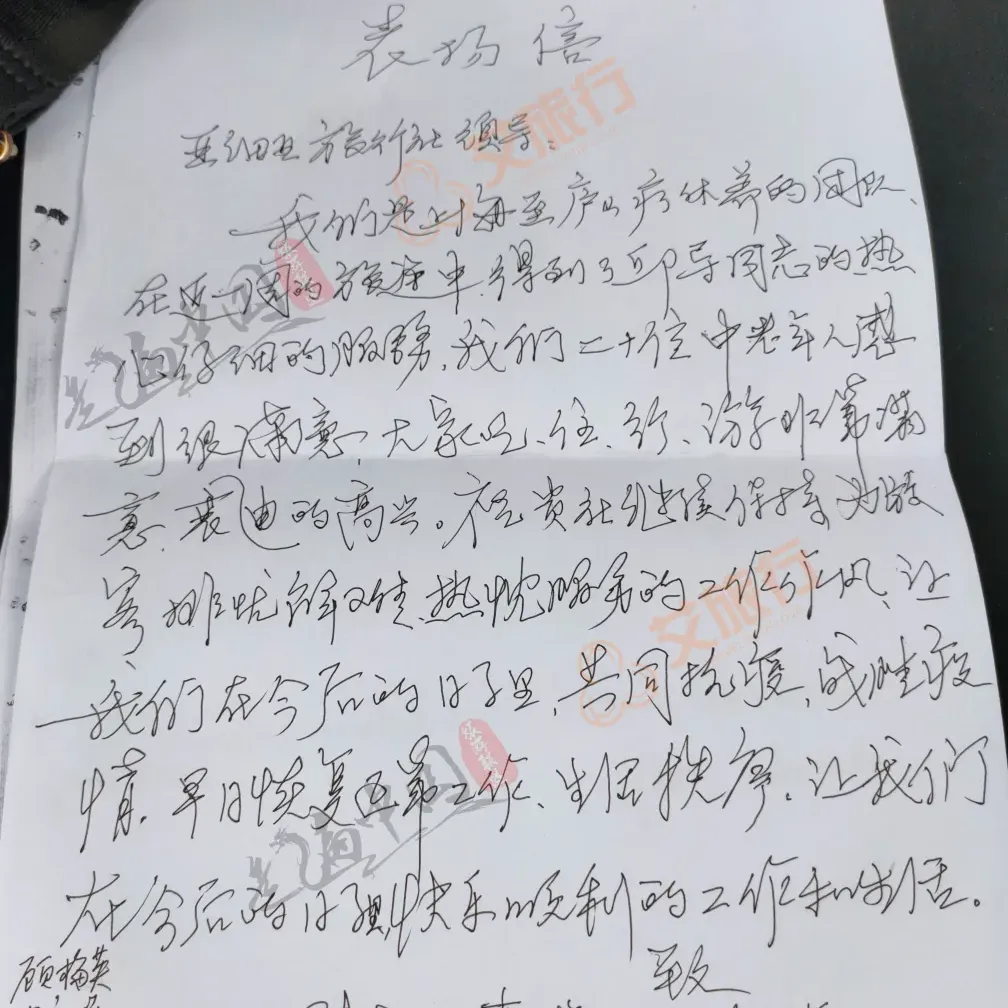 表扬信
亚细亚旅行社领导:
我们是上海至庐山疗休养的团队,
在近一周的旅途中,得到了邱导同志的热
心仔细的服务,我们二十位中老年人感
到很满意,大家吃、住、行、游非常满
意,衷心的高兴。祝贵社继续保持为顾
客排忧解难,热忱服务的工作作风,让
我们在今后的日子里,共同抗疫,战胜疫
情,早日恢复正常工作、生活秩序,让我们
在今后的日子里,快乐顺利的工作和生活。
致
顾梅英
艾旅行
艾旅行